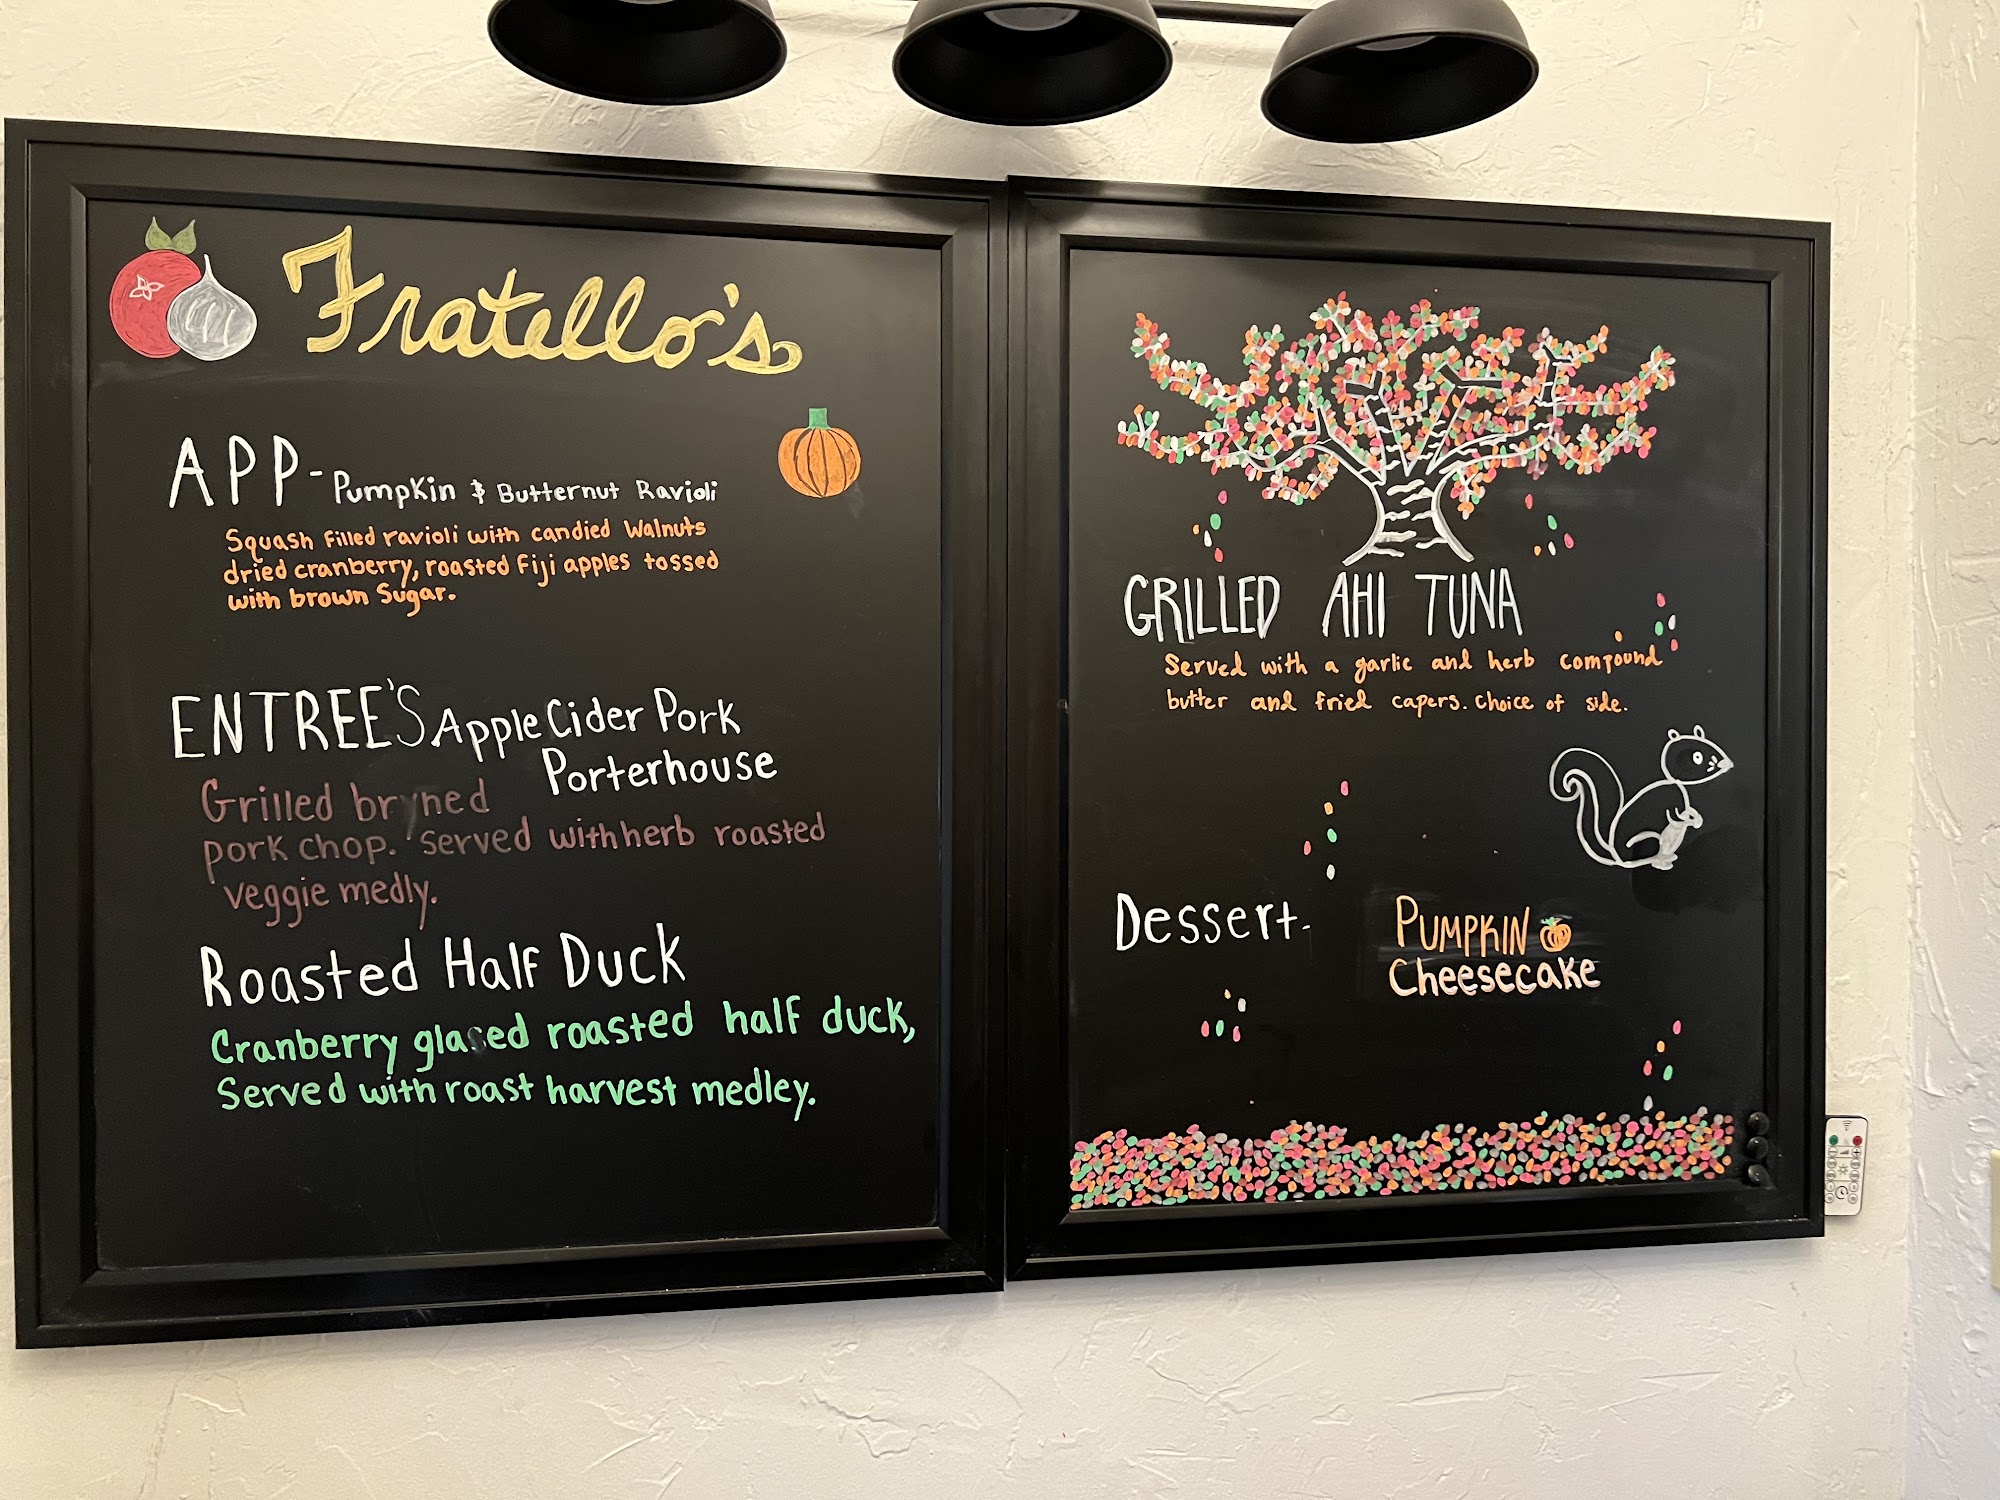 Fratello's
APP- Pumpkin & Butternut Ravioli
Squash filled ravioli with candied Walnuts
dried cranberry, roasted Fiji apples tossed
with brown Sugar.
ENTREE'S Apple Cider Pork
Porterhouse
Grilled bryned
pork chop. Served with herb roasted
veggie medly.
Roasted Half Duck
Cranberry glazed roasted half duck,
Served with roast harvest medley.
GRILLED AHI TUNA
Served with a garlic and herb compound
butter and fried capers. Choice of side.
Dessert-
PUMPKIN
Cheesecake